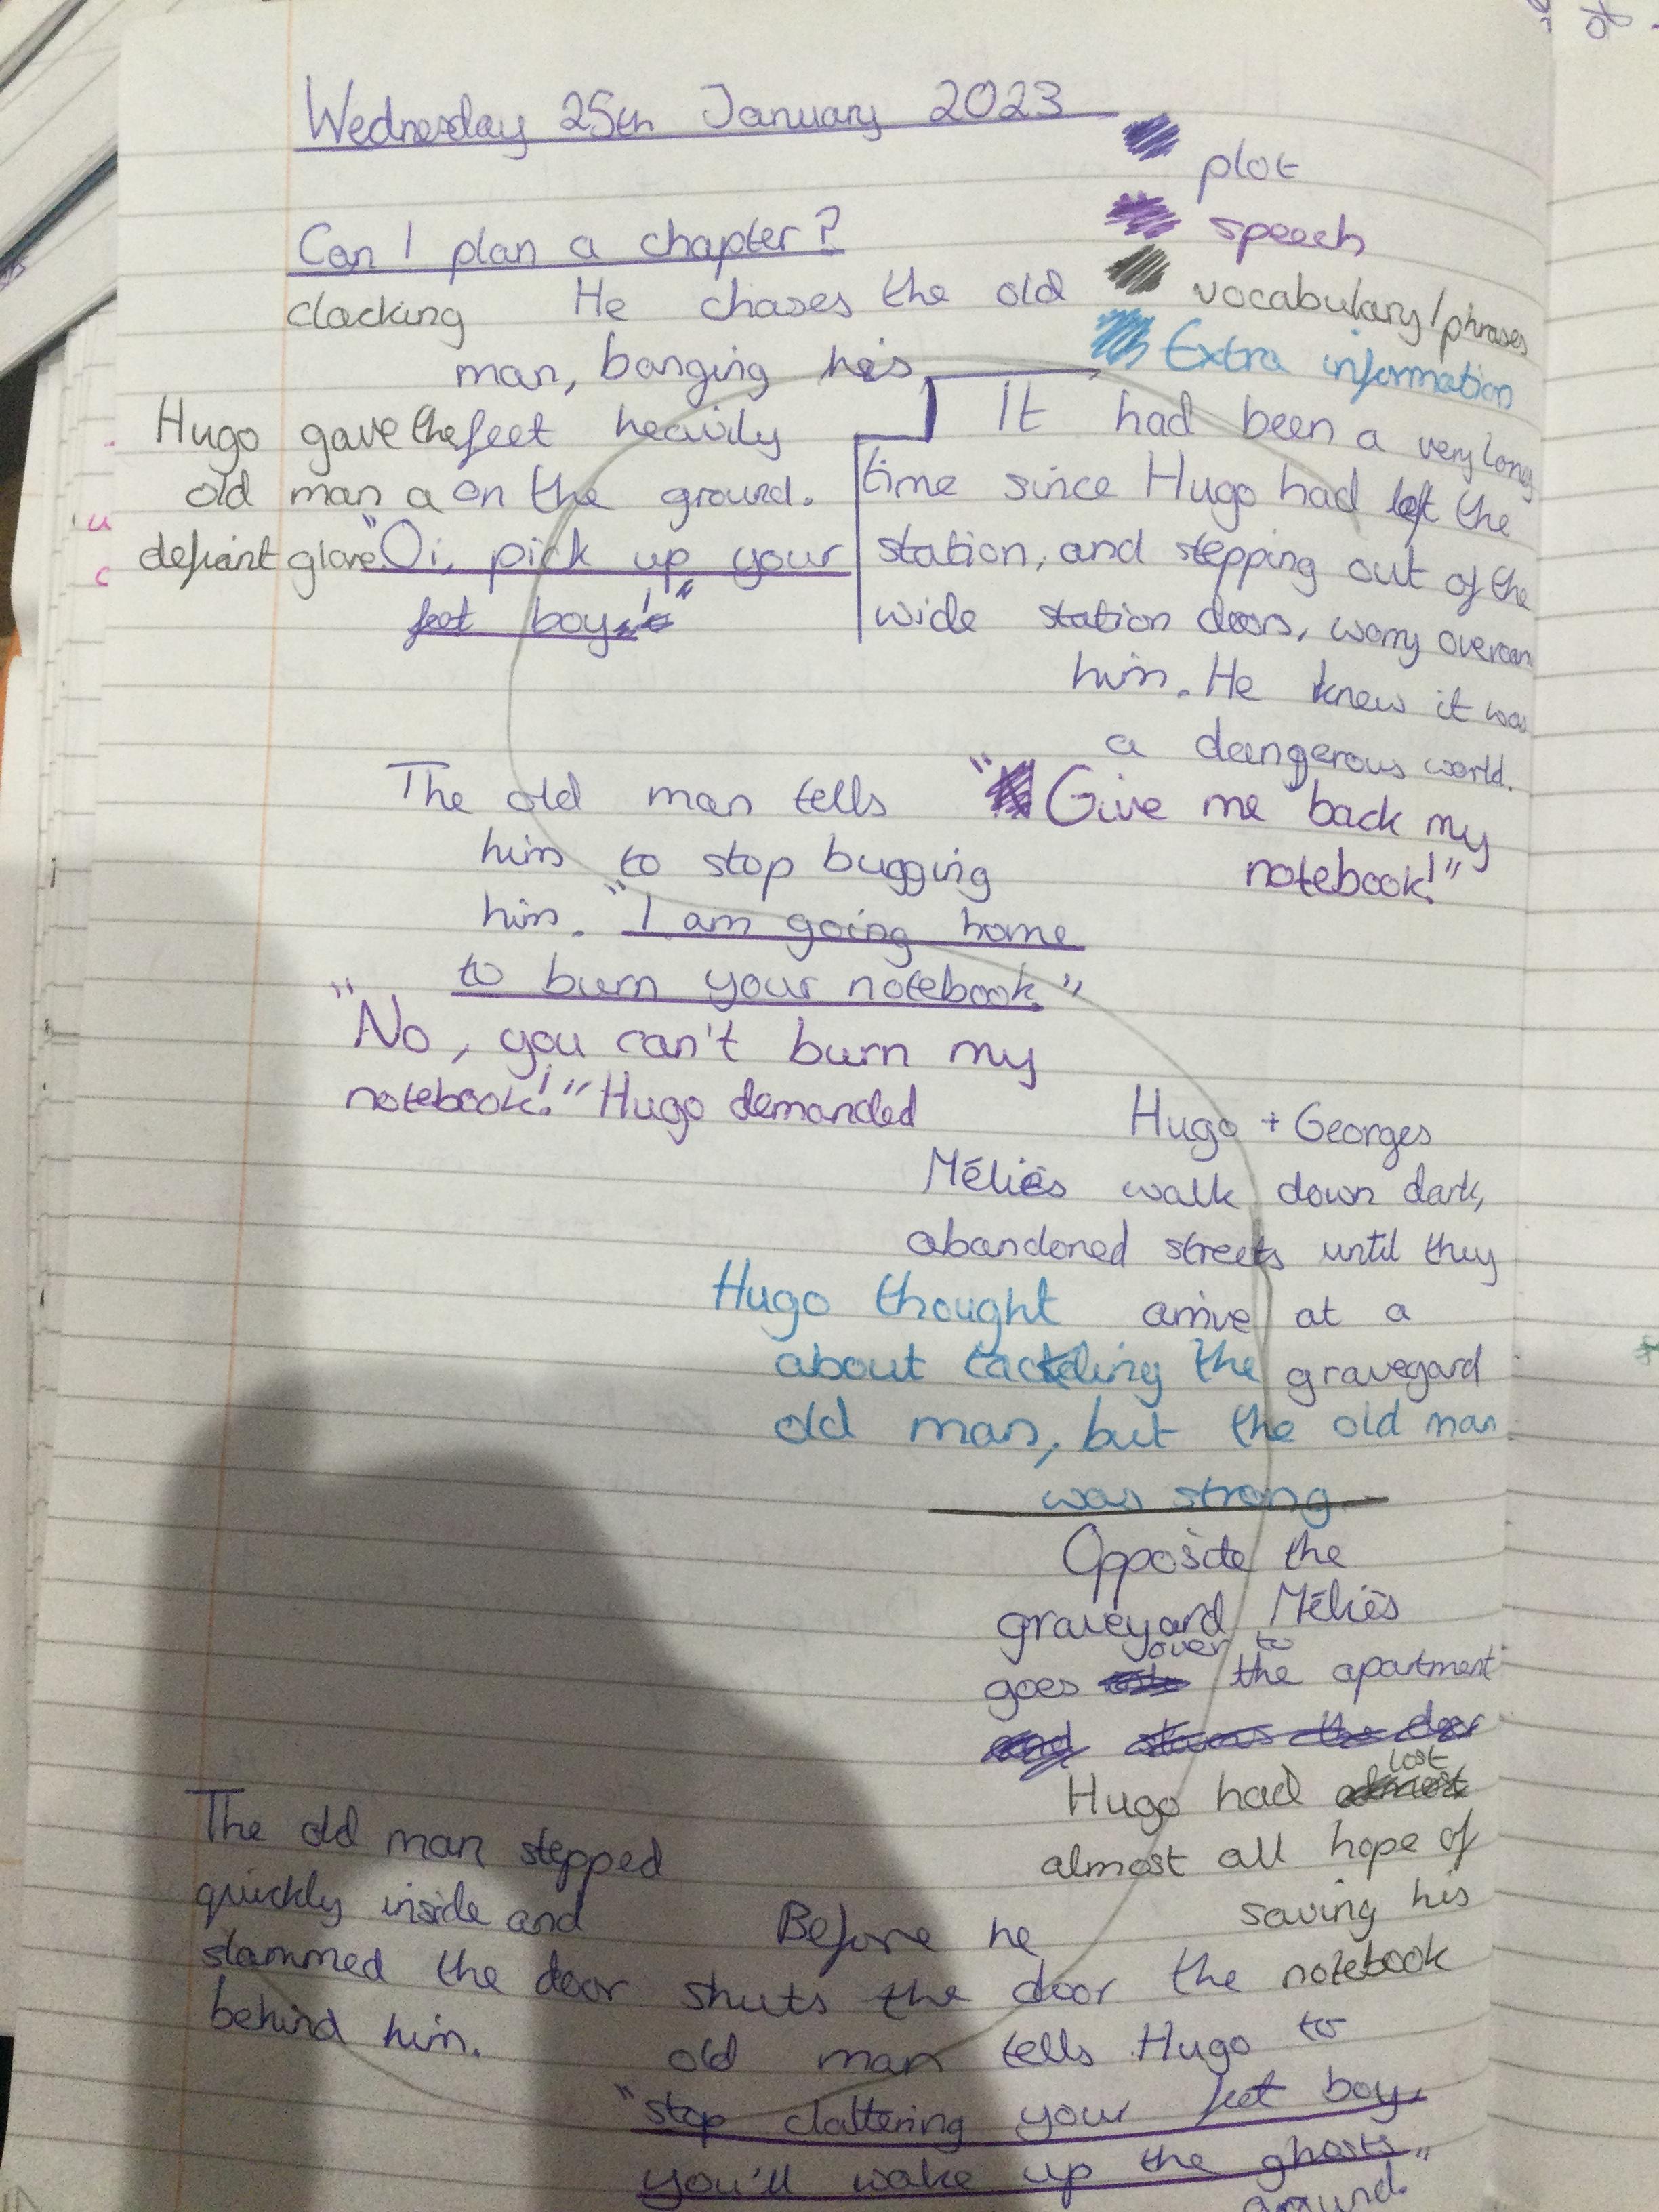 Wednesday 25th January 2023
plot
speech
vocabulary/phrases
Extra information
Can I plan a chapter?
clacking
He chases the old
man, banging his
feet heavily
on the ground.
"Oi, pick up your
feet boy!"
Hugo gave the
old man a
defiant glare.
It had been a very long
time since Hugo had left the
station, and stepping out of the
wide station doors, worry overcam
him. He knew it was
a dangerous world.
"Give me back my
notebook!"
The old man tells
him to stop bugging
him. "I am going home
to burn your notebook."
"No, you can't burn my
notebook!" Hugo demanded
Hugo + Georges
Méliès walk down dark,
abandoned streets until they
arrive at a
graveyard
Hugo thought
about tackling the
old man, but the old man
was strong.
Opposite the
graveyard Méliès
goes over to the apartment
and slams the door
Hugo had lost
almost all hope of
saving his
notebook
Before he
shuts the door the
old man tells Hugo to
"stop clattering your feet boy,
you'll wake up the ghosts."
around.
The old man stepped
quickly inside and
slammed the door
behind him.